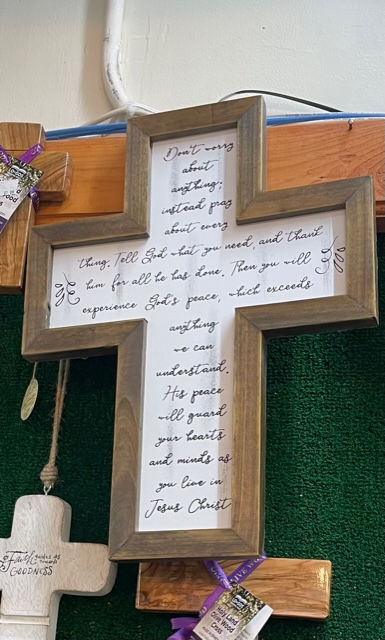 Don't worry
about
anything;
instead pray
about every
thing. Tell God what you need, and thank
him for all he has done. Then you will
experience God's peace, which exceeds
anything
we can
understand.
His peace
will guard
your hearts
and minds as
you live in
Jesus Christ
Faith
GOODNESS
Holy Land
Olive Wood